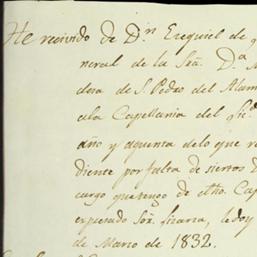 He recivido de Dn Ezequiel de
neral de la Sra. Da
dora de S. Pedro del Alam
la Capellania del
año y aquenta delo que
diente por falta de
cargo que tengo de dho. Cap
expresado Sor. Lizarra, le doy
de Marzo de 1832.